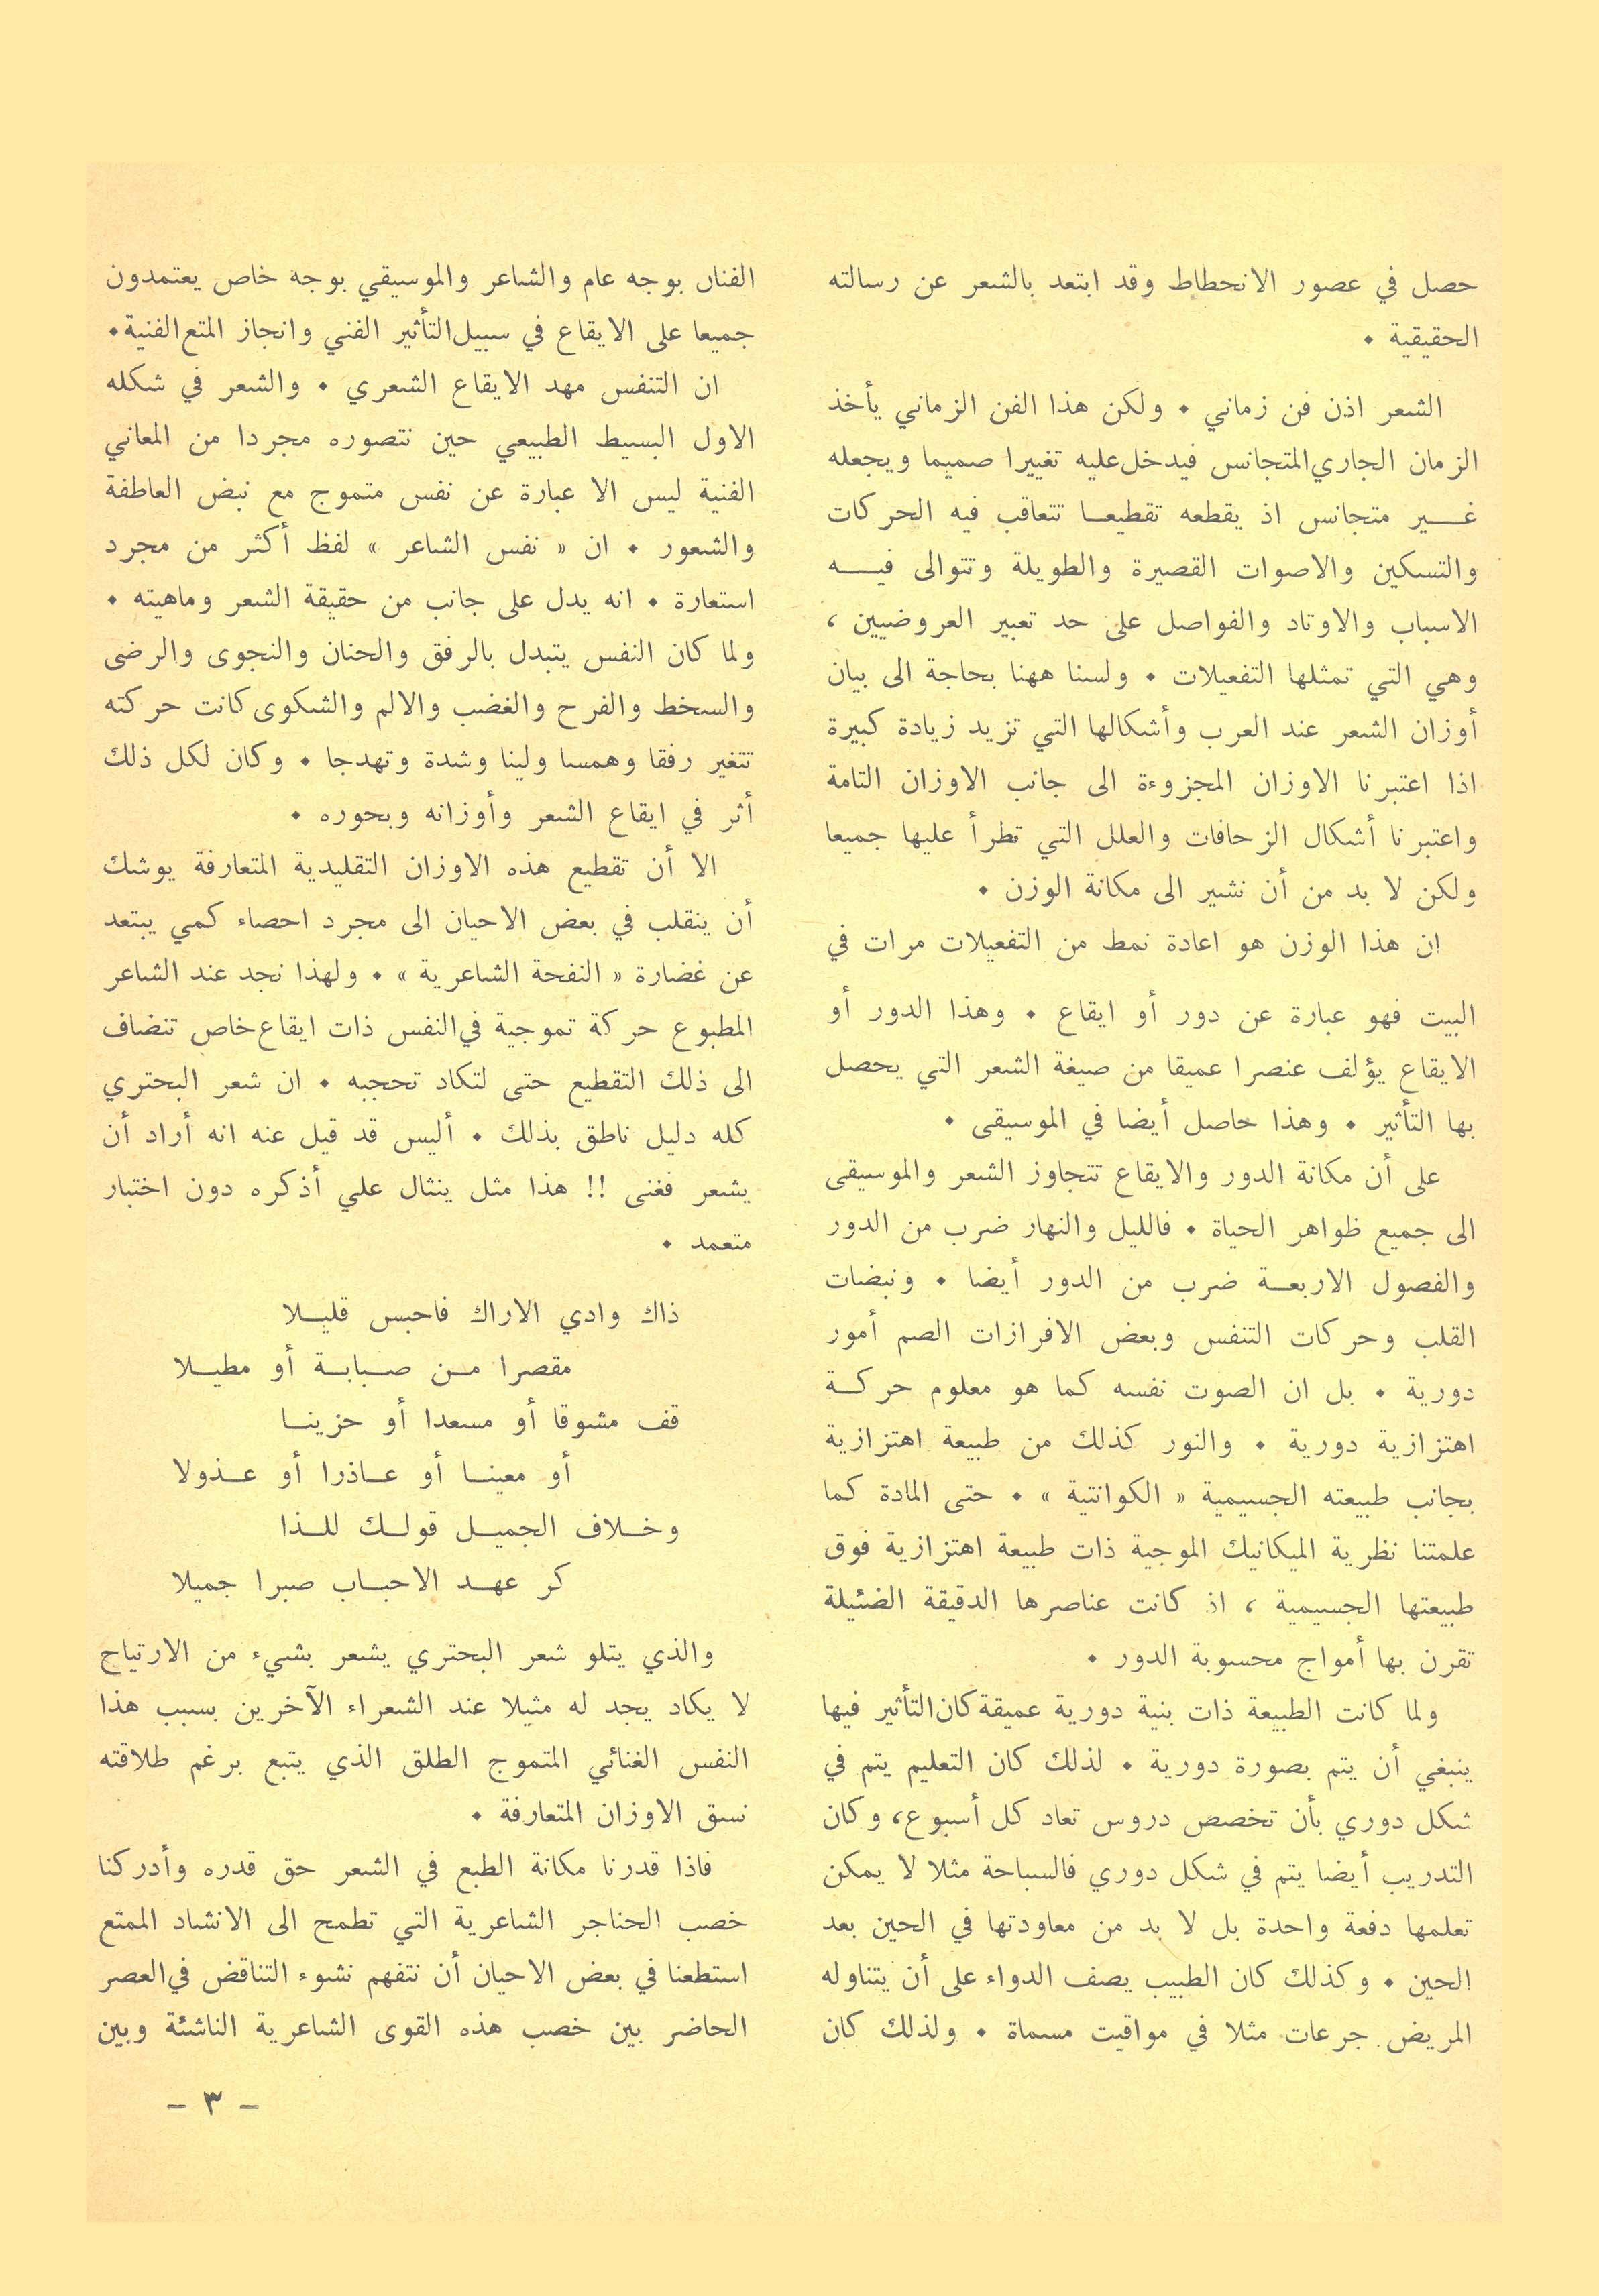 حصل في عصور الانحطاط وقد ابتعد بالشعر عن رسالته
الحقيقية .
الشعر اذن فن زماني . ولكن هذا الفن الزماني يأخذ
الزمان الجاري المتجانس فيدخل عليه تغييرا صميما ويجعله
غير متجانس اذ يقطعه تقطيعا تتعاقب فيه الحركات
والتسكين والاصوات القصيرة والطويلة وتتوالى فيه
الاسباب والاوتاد والفواصل على حد تعبير العروضيين ،
وهي التي تمثلها التفعيلات . ولسنا ههنا بحاجة الى بيان
أوزان الشعر عند العرب وأشكالها التي تزيد زيادة كبيرة
اذا اعتبرنا الاوزان المجزوءة الى جانب الاوزان التامة
واعتبرنا أشكال الزحافات والعلل التي تطرأ عليها جميعا
ولكن لا بد من أن نشير الى مكانة الوزن .
ان هذا الوزن هو اعادة نمط من التفعيلات مرات في
البيت فهو عبارة عن دور أو ايقاع . وهذا الدور أو
الايقاع يؤلف عنصرا عميقا من صيغة الشعر التي يحصل
بها التأثير . وهذا حاصل أيضا في الموسيقى .
على أن مكانة الدور والايقاع تتجاوز الشعر والموسيقى
الى جميع ظواهر الحياة . فالليل والنهار ضرب من الدور
والفصول الاربعة ضرب من الدور أيضا . ونبضات
القلب وحركات التنفس وبعض الافرازات الصم أمور
دورية . بل ان الصوت نفسه كما هو معلوم حركة
اهتزازية دورية . والنور كذلك من طبيعة اهتزازية
بجانب طبيعته الجسيمية « الكوانتية » . حتى المادة كما
علمتنا نظرية الميكانيك الموجية ذات طبيعة اهتزازية فوق
طبيعتها الجسيمية ، اذ كانت عناصرها الدقيقة الضئيلة
تقرن بها أمواج محسوبة الدور .
ولما كانت الطبيعة ذات بنية دورية عميقة كان التأثير فيها
ينبغي أن يتم بصورة دورية . لذلك كان التعليم يتم في
شكل دوري بأن تخصص دروس تعاد كل أسبوع، وكان
التدريب أيضا يتم في شكل دوري فالسباحة مثلا لا يمكن
تعلمها دفعة واحدة بل لا بد من معاودتها في الحين بعد
الحين . وكذلك كان الطبيب يصف الدواء على أن يتناوله
المريض جرعات مثلا في مواقيت مسماة . ولذلك كان
الفنان بوجه عام والشاعر والموسيقي بوجه خاص يعتمدون
جميعا على الايقاع في سبيل التأثير الفني وانجاز المتع الفنية.
ان التنفس مهد الايقاع الشعري . والشعر في شكله
الاول البسيط الطبيعي حين نتصوره مجردا من المعاني
الفنية ليس الا عبارة عن نفس متموج مع نبض العاطفة
والشعور . ان « نفس الشاعر » لفظ أكثر من مجرد
استعارة . انه يدل على جانب من حقيقة الشعر وماهيته .
ولما كان النفس يتبدل بالرفق والحنان والنجوى والرضى
والسخط والفرح والغضب والالم والشكوى كانت حركته
تتغير رفقا وهمسا ولينا وشدة وتهدجا . وكان لكل ذلك
أثر في ايقاع الشعر وأوزانه وبحوره .
الا أن تقطيع هذه الاوزان التقليدية المتعارفة يوشك
أن ينقلب في بعض الاحيان الى مجرد احصاء كمي يبتعد
عن غضارة « النفحة الشاعرية » . ولهذا نجد عند الشاعر
المطبوع حركة تموجية في النفس ذات ايقاع خاص تنضاف
الى ذلك التقطيع حتى لتكاد تحجبه . ان شعر البحتري
كله دليل ناطق بذلك . أليس قد قيل عنه انه أراد أن
يشعر فغنى !! هذا مثل ينثال علي أذكره دون اختبار
متعمد .
ذاك وادي الاراك فاحبس قليلا
مقصرا من صبابة أو مطيلا
قف مشوقا أو مسعدا أو حزينا
أو معينا أو عاذرا أو عذولا
وخلاف الجميل قولك للذا
كر عهد الاحباب صبرا جميلا
والذي يتلو شعر البحتري يشعر بشيء من الارتياح
لا يكاد يجد له مثيلا عند الشعراء الآخرين بسبب هذا
النفس الغنائي المتموج الطلق الذي يتبع برغم طلاقته
نسق الاوزان المتعارفة .
فاذا قدرنا مكانة الطبع في الشعر حق قدره وأدركنا
خصب الحناجر الشاعرية التي تطمح الى الانشاد الممتع
استطعنا في بعض الاحيان أن نتفهم نشوء التناقض في العصر
الحاضر بين خصب هذه القوى الشاعرية الناشئة وبين
- ٣ -